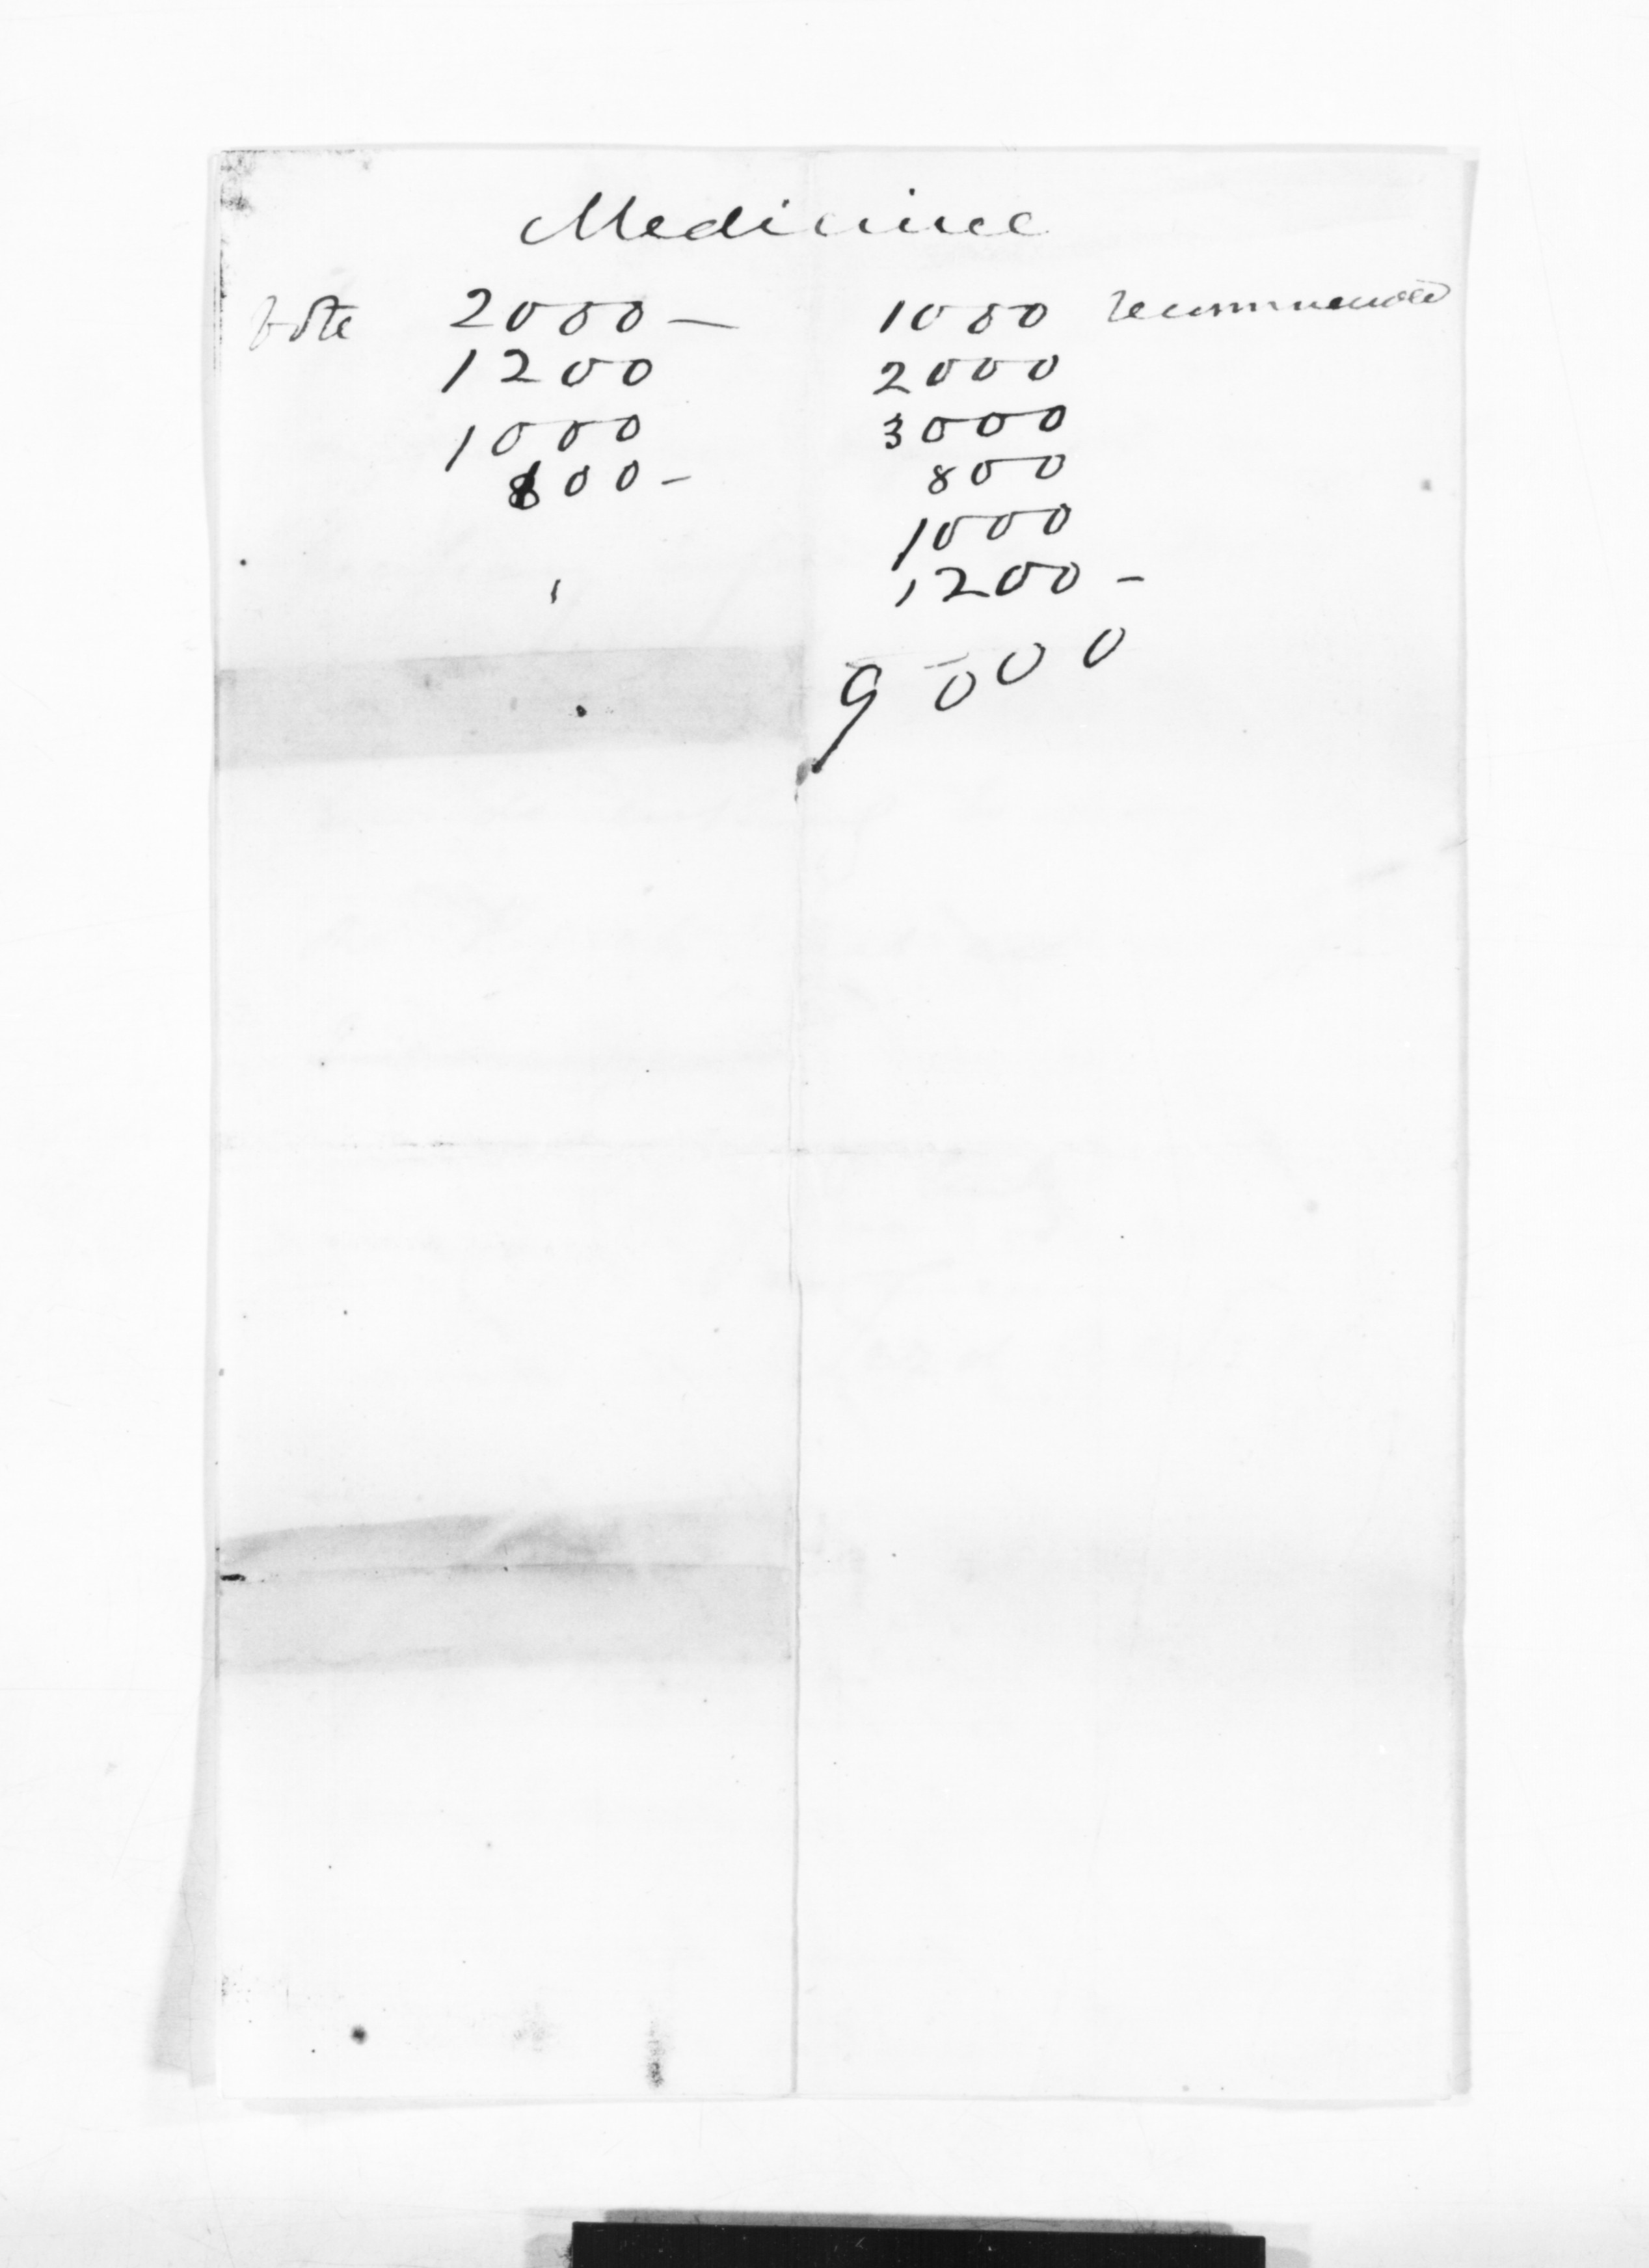 Medicine
vote 2000 — 1000 recommended
1200 2000
1000 3000
800 - 800
1000
1200 -
9000